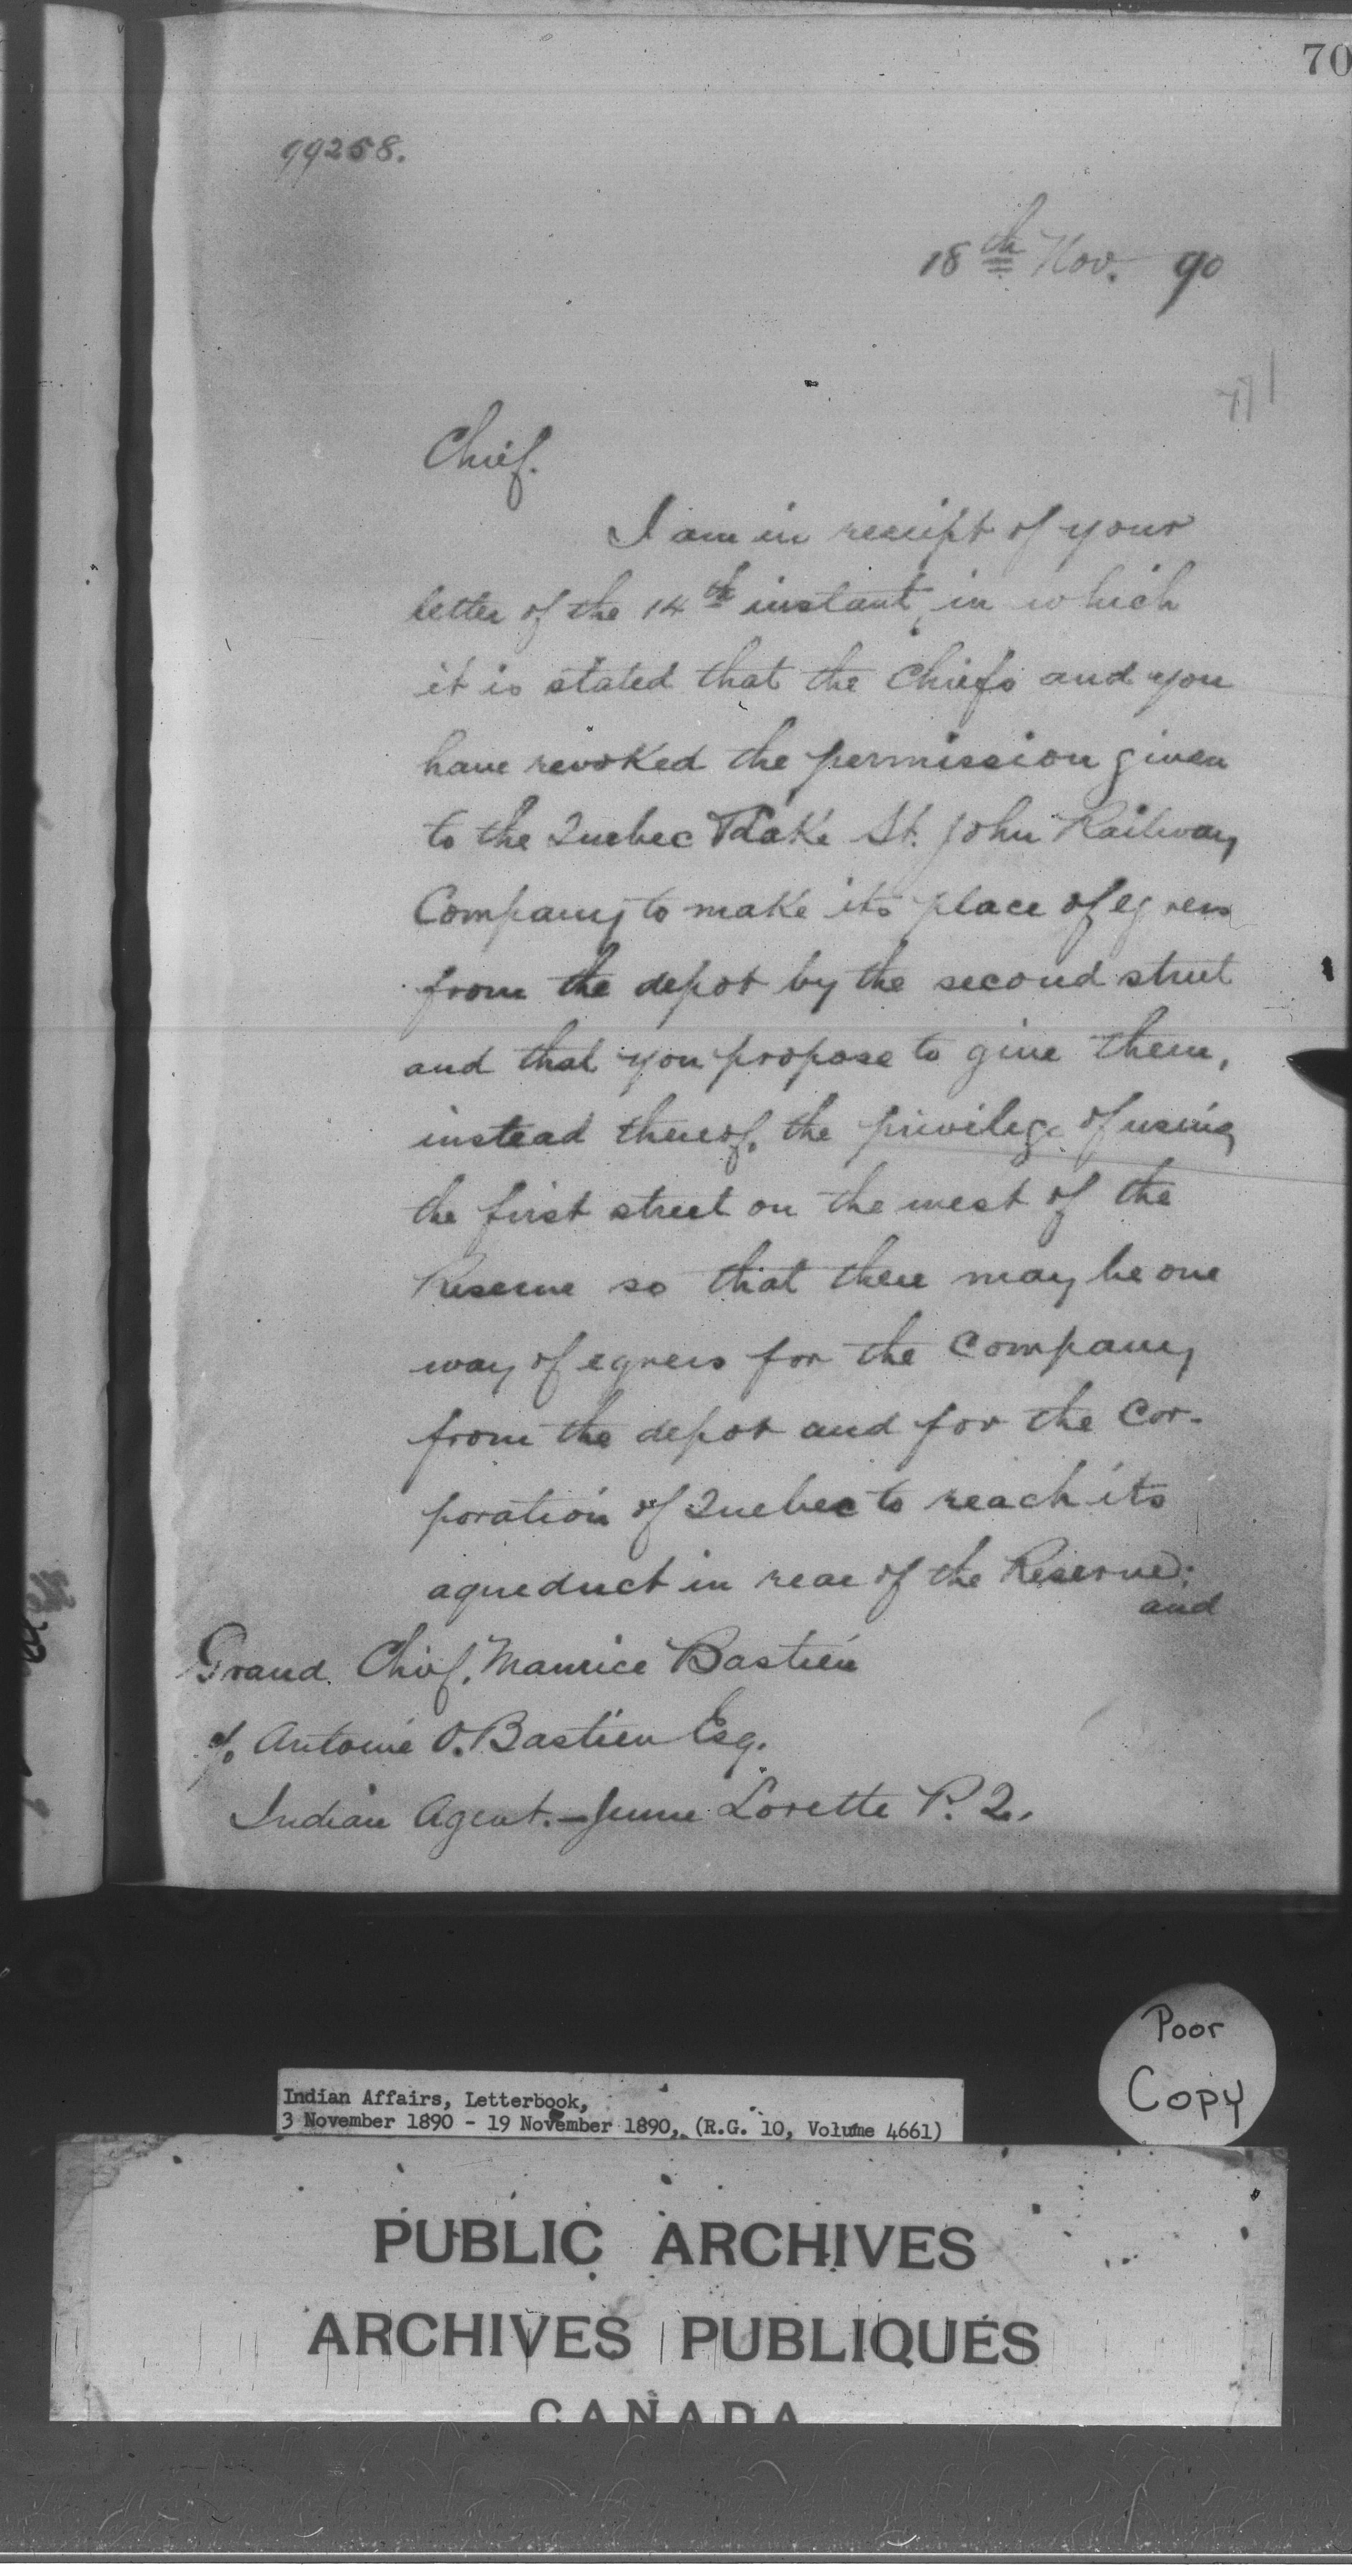 70
99258.
18th Nov. 90
Chief.
I am in receipt of your
letter of the 14th instant, in which
it is stated that the Chiefs and you
have revoked the permission given
to the Quebec & Lake St. John Railway
Company to make its place of egress
from the depot by the second street
and that you propose to give them,
instead thereof, the privilege of using
the first street on the west of the
Reserve so that there may be one
way of egress for the Company
from the depot and for the Cor-
poration of Quebec to reach its
aqueduct in rear of the Reserve;
and
Grand Chief, Maurice Bastien
c/o Antoine O. Bastien Esq.
Indian Agent. - Jeune Lorette P. Q.
Poor
Copy
Indian Affairs, Letterbook,
3 November 1890 - 19 November 1890, (R.G. 10, Volume 4661)
PUBLIC ARCHIVES
ARCHIVES PUBLIQUES
CANADA